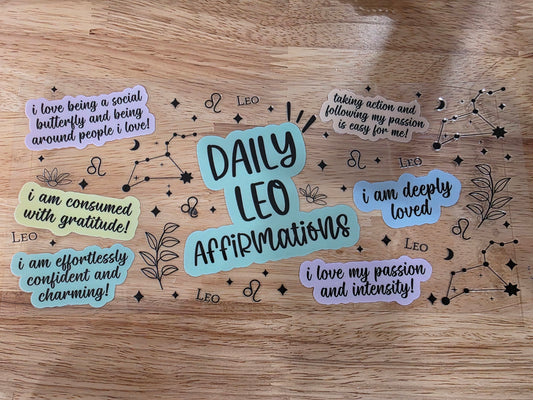 i love being a social
butterfly and being
around people i love!
Leo
taking action and
following my passion
is easy for me!
DAILY
LEO
AFFIRMATIONS
Leo
i am consumed
with gratitude!
i am deeply
loved
Leo
Leo
i am effortlessly
confident and
charming!
i love my passion
and intensity!
Leo